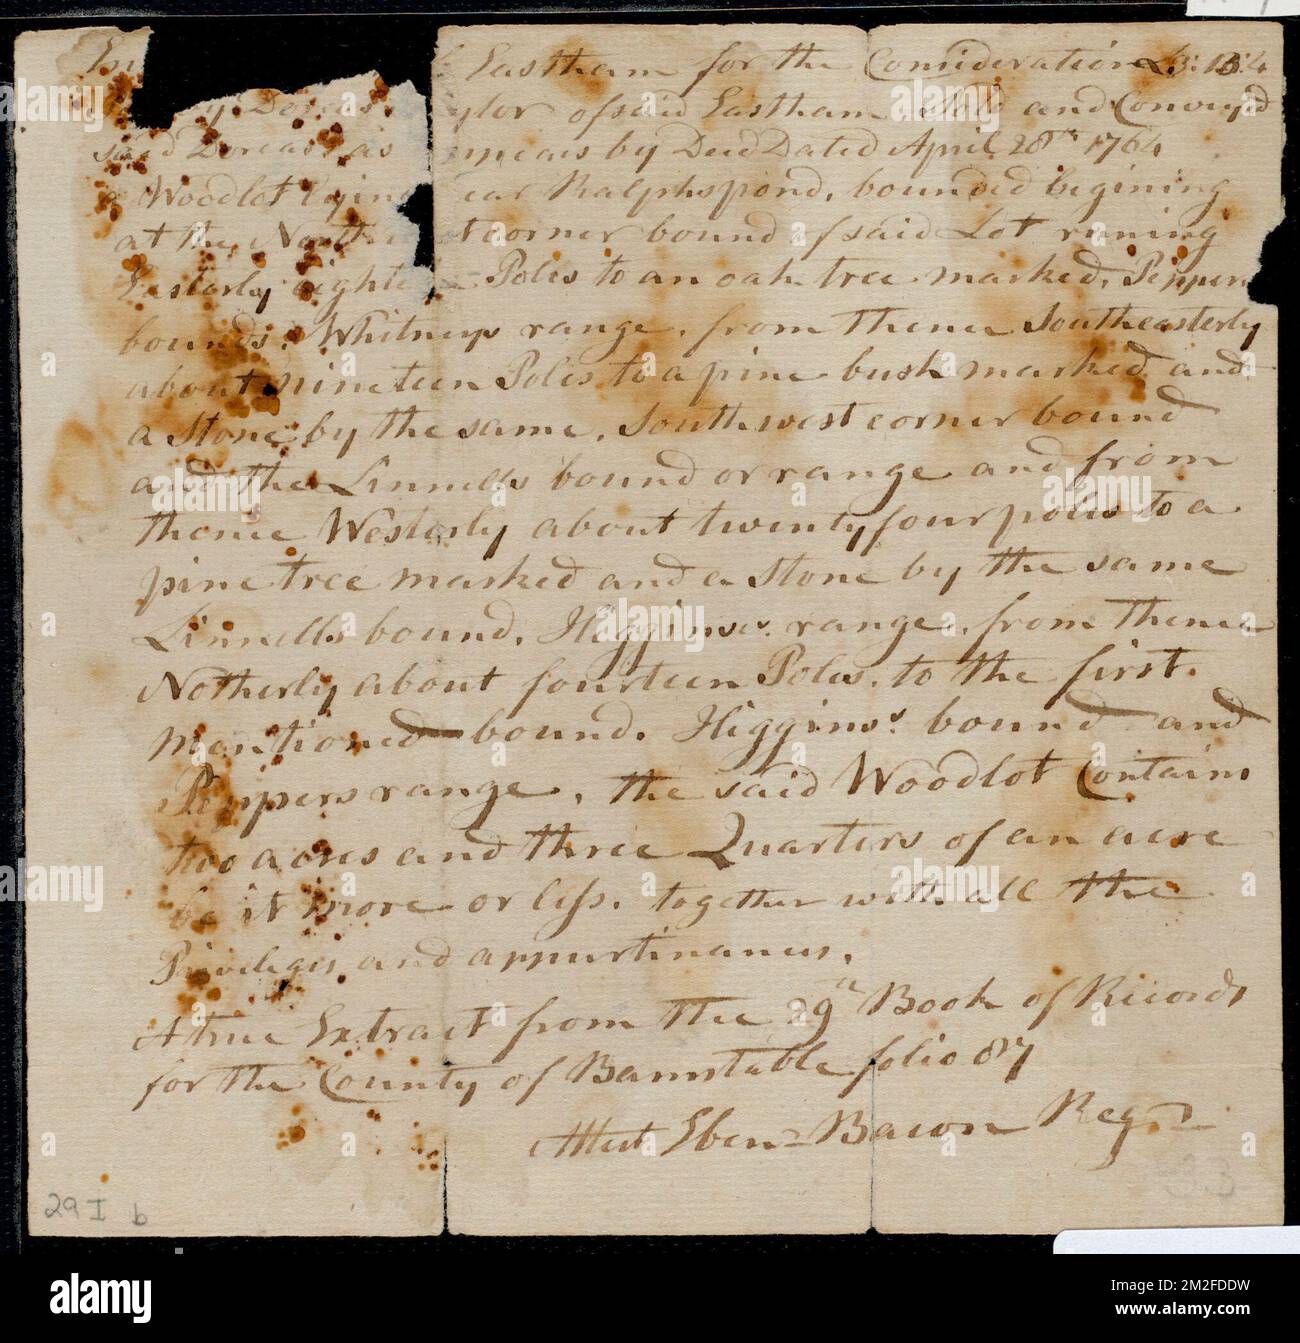 Eastham for the Consideration £3:13:4
y Dorcas ylor of said Eastham Sold and Convey'd
said Dorcas as appears by Deed Dated April 28th 1764
a Woodlot lying near Ralphspond, bounded begining
at the North corner bound of said Lot runing
Easterly eighte Poles to an oak tree marked, Peppers
bounds. Whitneys range, from thence Southeasterly
about nineteen Poles to a pine bush marked and
a Stone by the same, Southwest corner bound
and the Linnells bound or range and from
thence Westerly about twentyfour poles to a
pine tree marked and a stone by the same
Linnells bound, Higginses range, from thence
Notherly about fourteen Poles, to the first
mentioned bound. Higgins's bound and
Peppers range, the said Woodlot Contains
two acres and three Quarters of an acre
be it more or less. together with all the
Privileges and appurtinances.
A true Extract from the 29th Book of Records
for the County of Barnstable folio 87
Attest Eben Bacon Reg
33
29 I b
alamy
Image ID: 2M2FDDW
www.alamy.com